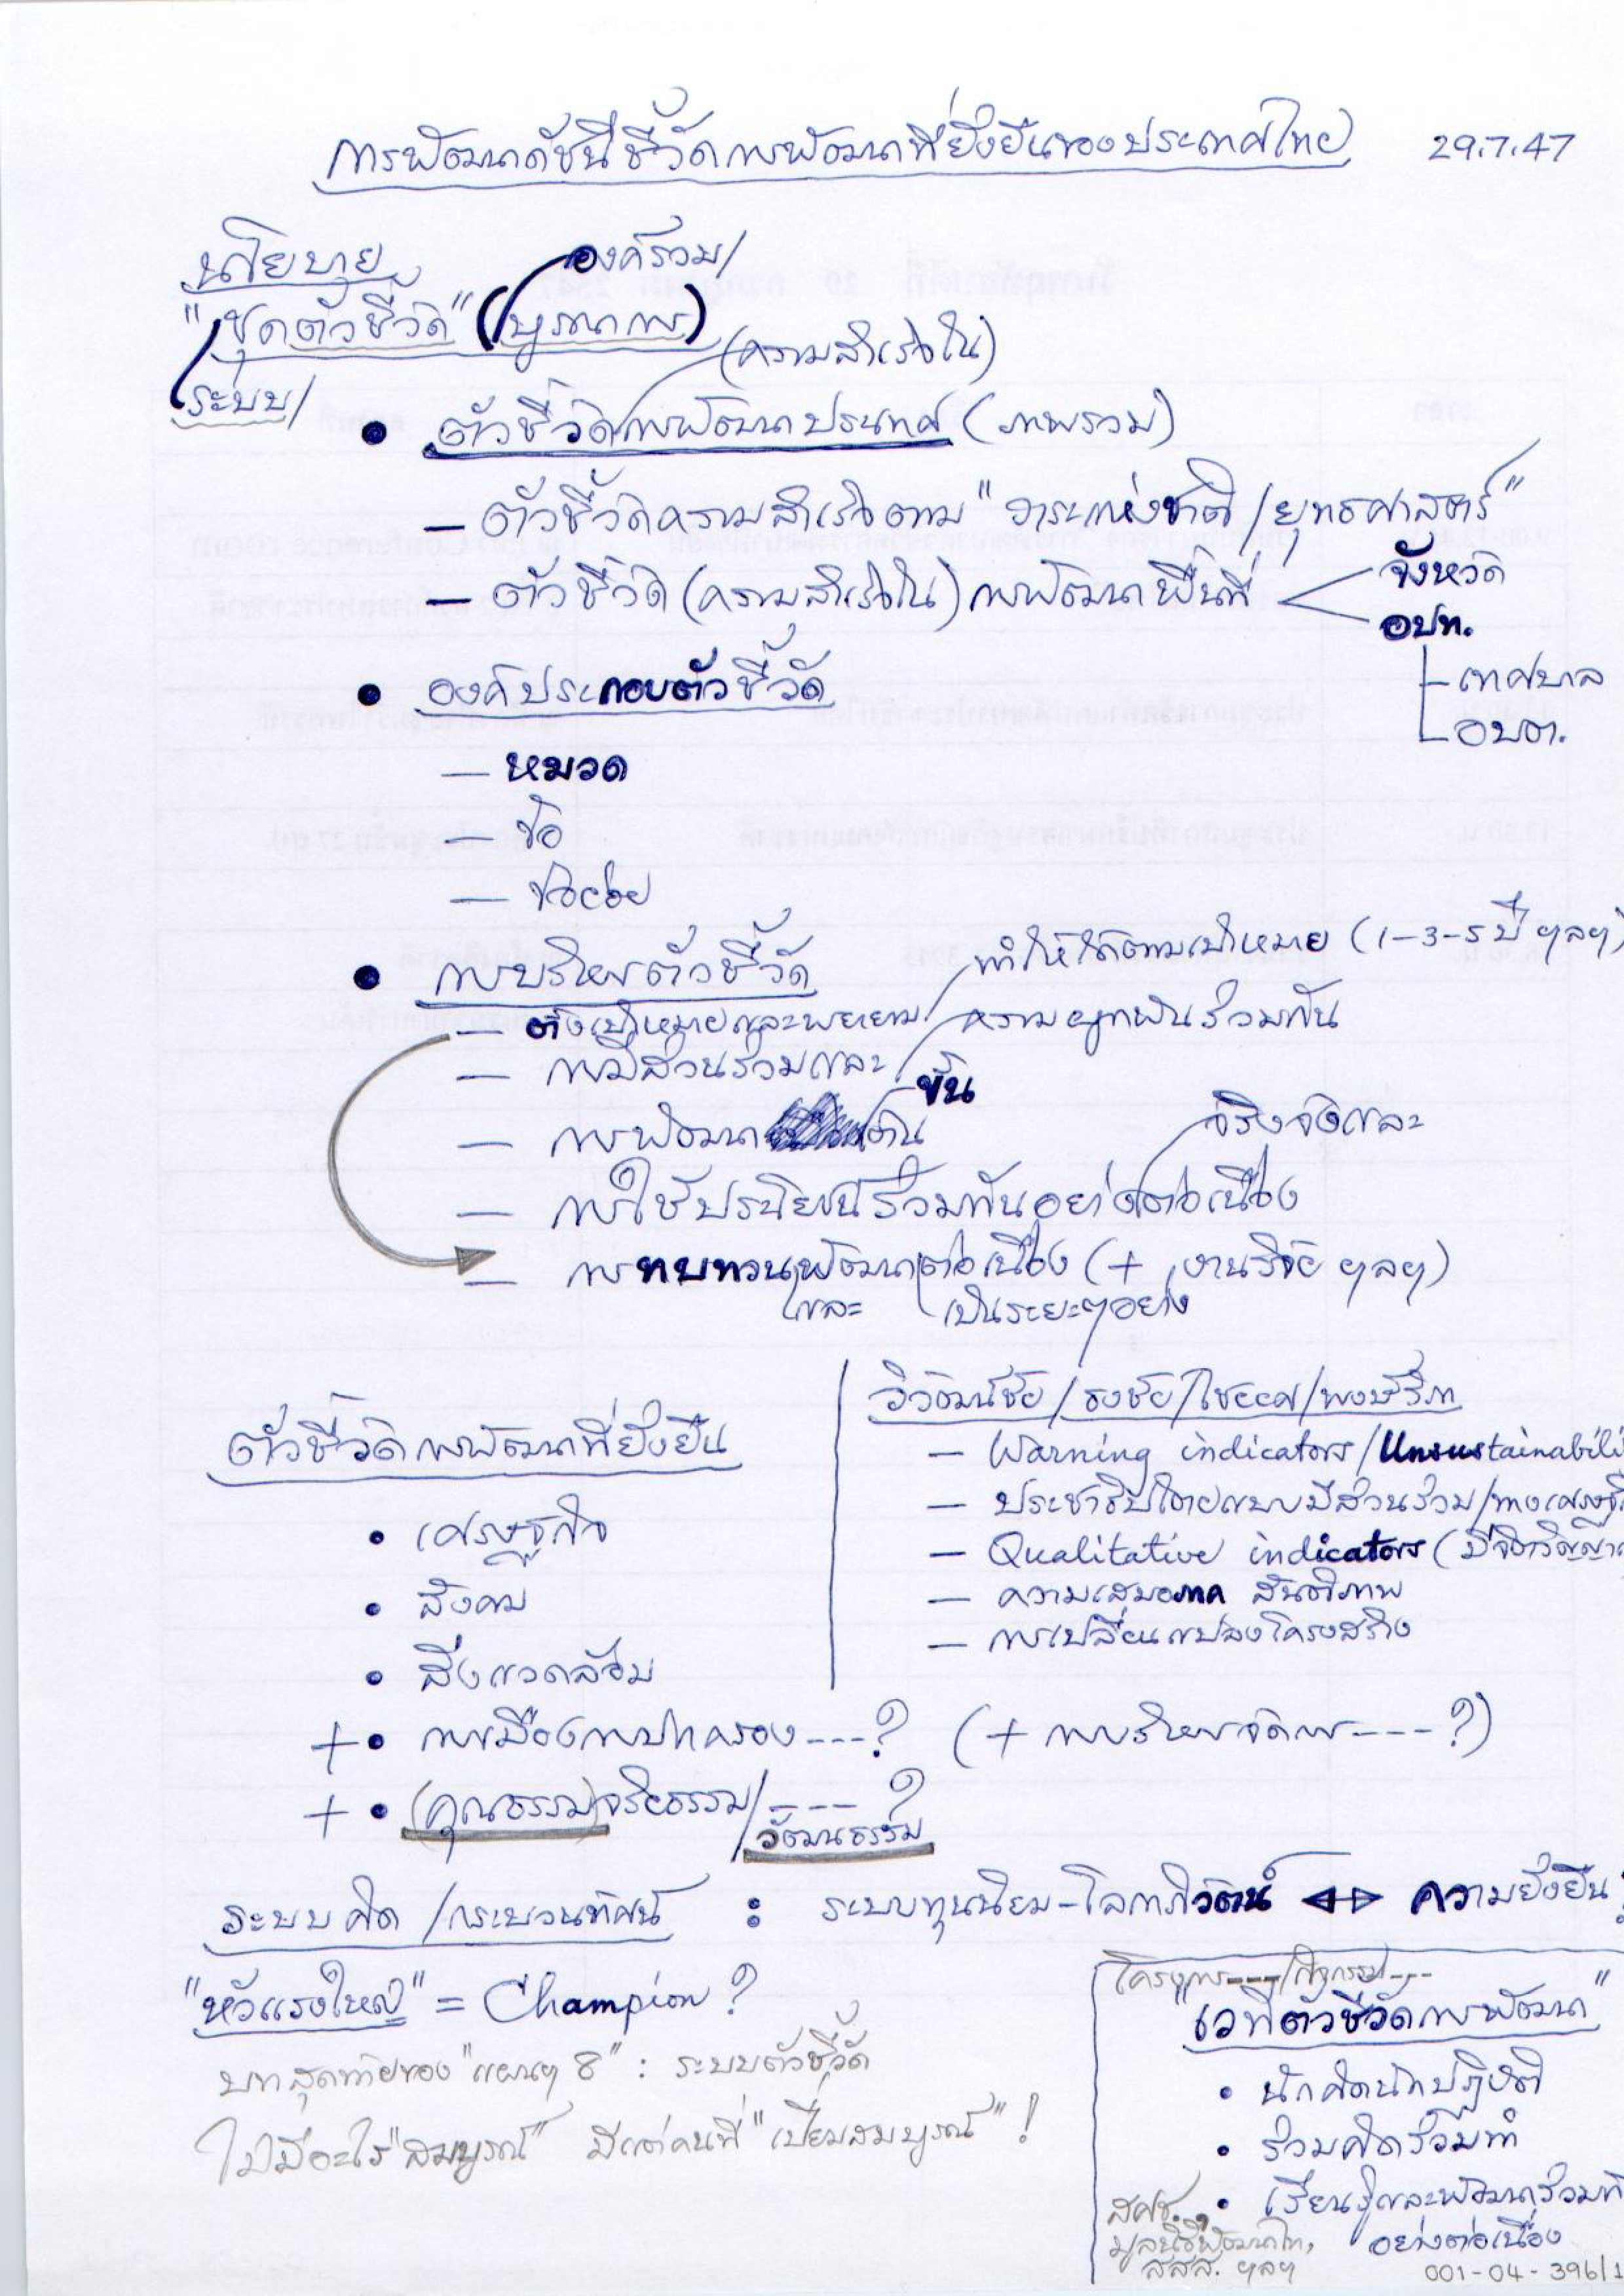 การพัฒนาดัชนีชี้วัดการพัฒนาที่ยั่งยืนของประเทศไทย 29.7.47
นโยบาย องค์รวม/
"ชุดตัวชี้วัด" (บูรณาการ)
ระบบ/ (ความสำเร็จใน)
• ตัวชี้วัดการพัฒนาประเทศ (ภาพรวม)
– ตัวชี้วัดความสำเร็จตาม "วาระแห่งชาติ/ยุทธศาสตร์"
– ตัวชี้วัด (ความสำเร็จใน) การพัฒนาพื้นที่ < จังหวัด
อปท.
– เทศบาล
– อบต.
• องค์ประกอบตัวชี้วัด
– หมวด
– ข้อ
– ข้อย่อย
• การบริหารตัวชี้วัด
– ตั้งเป้าหมายและพยายาม/ทำให้ได้ตามเป้าหมาย (1-3-5 ปี ฯลฯ)
– การมีส่วนร่วมและ/ความผูกพันร่วมกัน
– การพัฒนาขั้น
จริงจังและ
– การใช้ประโยชน์ร่วมกันอย่างต่อเนื่อง
– การทบทวนพัฒนาต่อเนื่อง (+ งานวิจัย ฯลฯ)
และ เป็นระยะๆอย่าง
ตัวชี้วัดการพัฒนาที่ยั่งยืน
• เศรษฐกิจ
• สังคม
• สิ่งแวดล้อม
+ • การเมืองการปกครอง ---? (+ การบริหารจัดการ ----?)
+ • (คุณธรรม)จริยธรรม/----?
วัฒนธรรม
วิวัฒน์ชัย/ธงชัย/ไชยยศ/
– Warning indicators/Unsustainabili
– ประชาธิปไตยแบบมีส่วนร่วม/ทางเศรษฐ
– Qualitative indicators (มีจิตวิญญาณ
– ความเสมอภาค สันติภาพ
– การเปลี่ยนแปลงโครงสร้าง
ระบบคิด/กระบวนทัศน์ : ระบบทุนนิยม-โลกาภิวัตน์ ⟷ ความยั่งยืน?
"หัวแรงใหญ่" = Champion?
บทสุดท้ายของ "แผนฯ 8" : ระบบตัวชี้วัด
ไม่มีอะไร "สมบูรณ์" มีแต่คนที่ "เปี่ยมสมบูรณ์" !
โครงการ---/กิจกรรม---
"เวทีตัวชี้วัดการพัฒนา"
• นักคิดนักปฏิบัติ
• ร่วมคิดร่วมทำ
• เรียนรู้และพัฒนาร่วมกั
อย่างต่อเนื่อง
สศช.,
มูลนิธิพัฒนาไท,
สสส. ฯลฯ
001-04-396/1